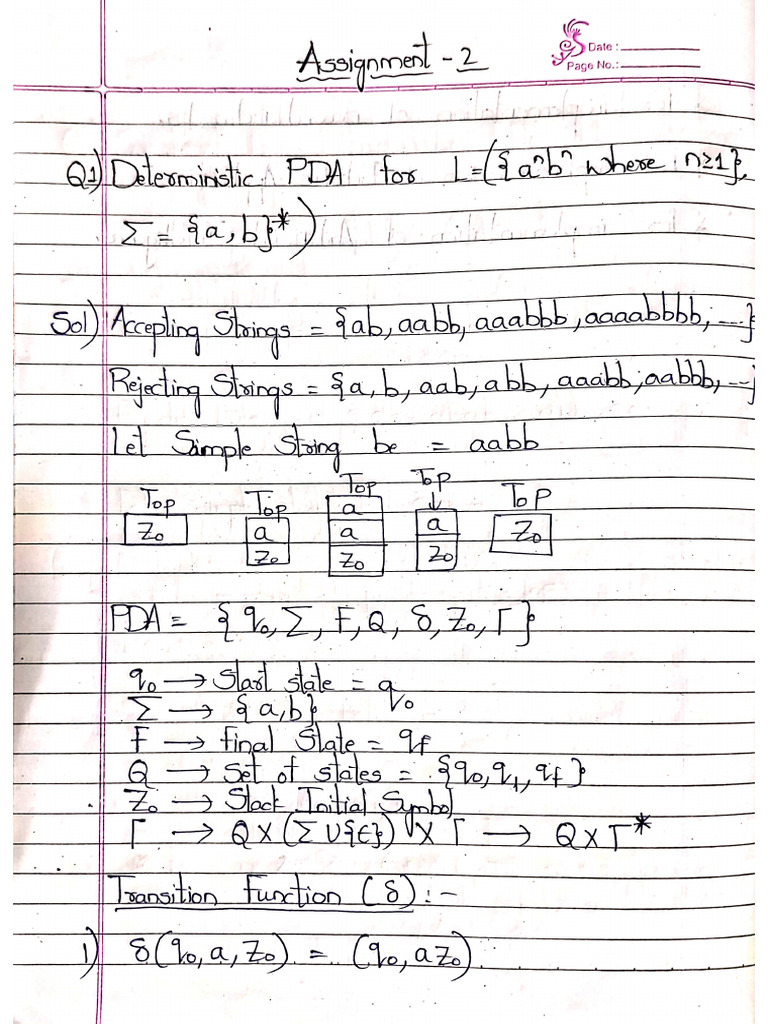 Assignment - 2
Date :
Page No.:
Q1) Deterministic PDA for L=({aⁿbⁿ where n≥1},
Σ = {a, b}*)
Sol) Accepting Strings = {ab, aabb, aaabbb, aaaabbbb, ...}
Rejecting Strings = {a, b, aab, abb, aaabb, aabbb, ...}
Let Sample String be = aabb
Top Top Top Top Top
Z₀ a a a Z₀
Z₀ a Z₀
Z₀
PDA = {q₀, Σ, F, Q, δ, Z₀, Γ}
q₀ → Start state = q₀
Σ → {a, b}
F → final State = qf
Q → Set of states = {q₀, q₁, qf}
Z₀ → Stack Initial Symbol
Γ → Q X (Σ U {ϵ}) X Γ → Q X Γ*
Transition Function (δ) :-
1) δ(q₀, a, Z₀) = (q₀, aZ₀)